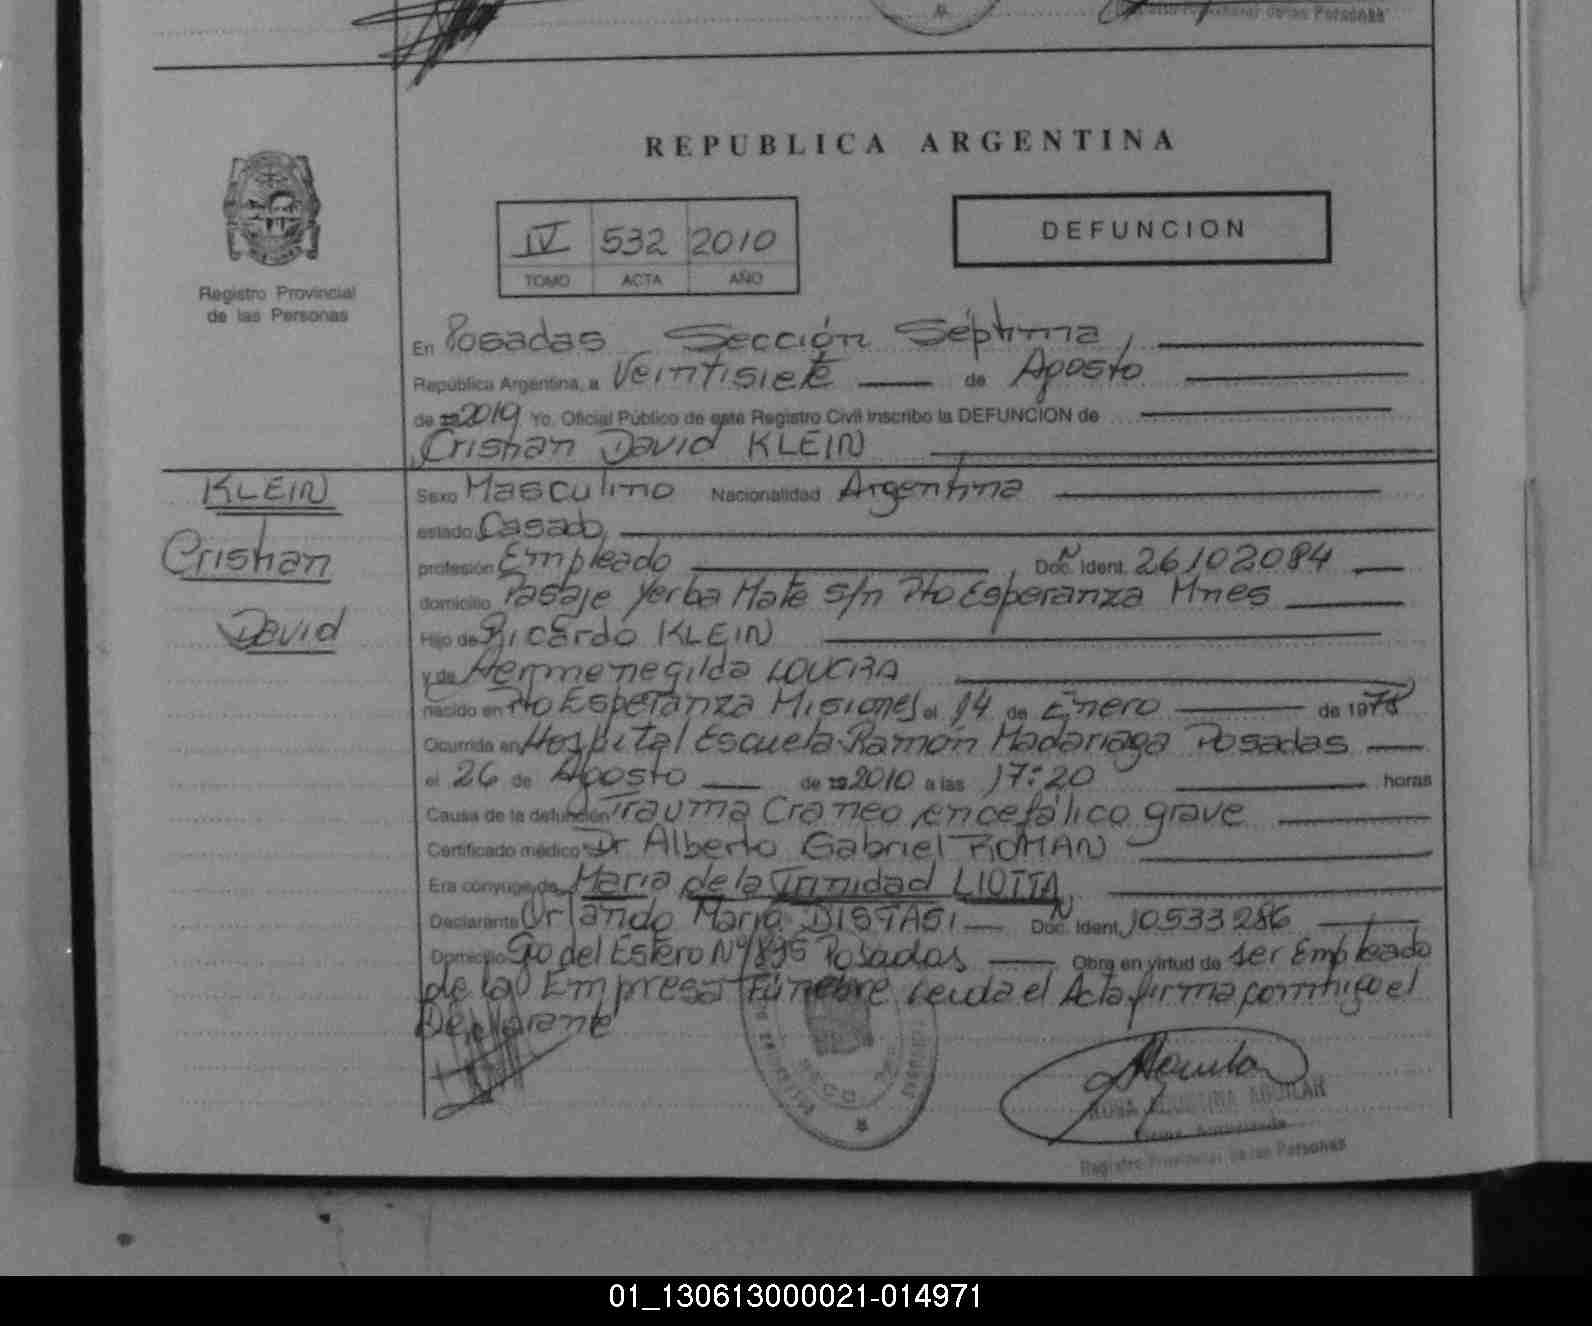 Registro Provincial de las Personas
REPUBLICA ARGENTINA
IV 532 2010
TOMO ACTA AÑO
DEFUNCION
Registro Provincial
de las Personas
En Posadas Sección Séptima,
República Argentina, a Veintisiete de Agosto
de 2010 Yo, Oficial Público de este Registro Civil inscribo la DEFUNCION de
Cristian David KLEIN
KLEIN
Cristian
David
Sexo Masculino Nacionalidad Argentina
estado Casado,
profesión Empleado Doc. Ident. Nº 26102084
domicilio Pasaje Yerba Mate s/n Pto Esperanza Mnes
Hijo de Ricardo KLEIN
y de Hermenegilda
nacido en Pto Esperanza Misiones el 14 de Enero de 1978
Ocurrida en Hospital Escuela Ramón Madariaga Posadas
el 26 de Agosto de 2010 a las 17:20 horas
Causa de la defunción Trauma Craneo encefálico grave
Certificado médico Dr Alberto Gabriel ROMAN
Era conyuge de Maria de la Trinidad LIOTTA
Declarante Orlando Mario DISTASI Doc. Ident. Nº 10533286
Domicilio Sgo del Estero Nº 1895 Posadas Obra en virtud de ser Empleado
de la Empresa Fúnebre Leida el Acta firma conmigo el
Declarante
ROSA AGUSTINA AGUILAR
Registro Provincial de las Personas
01_130613000021-014971